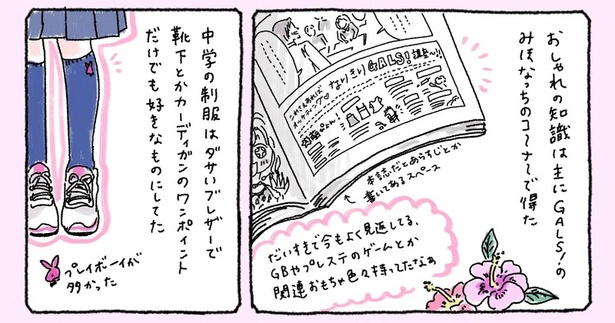 おしゃれの知識は主にGALS!の
みほなっちのコーナーで得た
なりきりGALS!講座〜!
↑本誌だとあらすじとか
書いてあるスペース
だいすきで今もよく見返してる、
GBやプレステのゲームとか
関連おもちゃ色々持ってたなぁ
中学の制服はダサいブレザーで
靴下とかカーディガンのワンポイント
だけでも好きなものにしてた
プレイボーイが
多かった